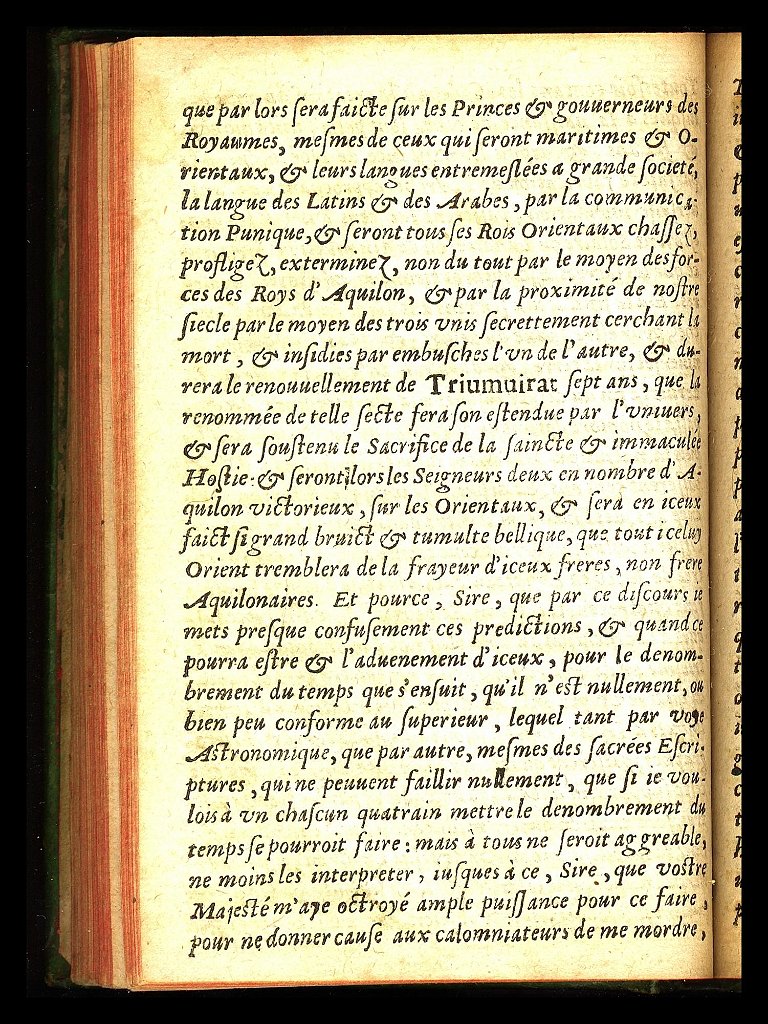 que par lors ſera faicte ſur les Princes & gouuerneurs des
Royaumes, meſmes de ceux qui ſeront maritimes & O-
rientaux, & leurs langues entremeſlées a grande ſocieté,
la langue des Latins & des Arabes, par la communica-
tion Punique, & ſeront tous ſes Rois Orientaux chaſſez,
profligez, exterminez, non du tout par le moyen des for-
ces des Roys d'Aquilon, & par la proximité de noſtre
ſiecle par le moyen des trois vnis ſecrettement cerchant la
mort, & inſidies par embuſches l'vn de l'autre, & du-
rera le renouuellement de Triumuirat ſept ans, que la
renommée de telle ſecte fera ſon eſtendue par l'vniuers,
& ſera ſouſtenu le Sacrifice de la ſaincte & immaculée
Hoſtie: & ſeront lors les Seigneurs deux en nombre d'A-
quilon victorieux, ſur les Orientaux, & ſera en iceux
faict ſi grand bruict & tumulte bellique, que tout iceluy
Orient tremblera de la frayeur d'iceux freres, non frere
Aquilonaires. Et pource, Sire, que par ce diſcours ie
mets preſque confuſement ces predictions, & quand ce
pourra eſtre & l'aduenement d'iceux, pour le denom-
brement du temps que s'enſuit, qu'il n'eſt nullement, ou
bien peu conforme au ſuperieur, lequel tant par voye
Aſtronomique, que par autre, meſmes des ſacrées Eſcri-
ptures, qui ne peuuent faillir nullement, que ſi ie vou-
lois à vn chaſcun quatrain mettre le denombrement du
temps ſe pourroit faire: mais à tous ne ſeroit aggreable,
ne moins les interpreter, iuſques à ce, Sire, que voſtre
Majeſté m'aye octroyé ample puiſſance pour ce faire,
pour ne donner cauſe aux calomniateurs de me mordre,